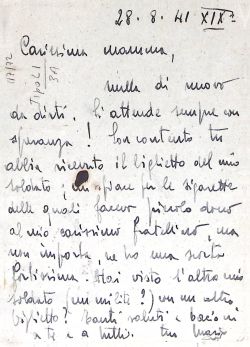 28.8.41 XIX°
Carissima mamma,
nulla di nuovo
da dirti. Si attende sempre con
speranza! Son contento tu
abbia ricevuto il biglietto del mio
soldato; mi spiace per le sigarette
delle quali facevo piccolo dono
al mio carissimo fratellino, ma
non importa, ne ho una scorta
fortissima. Hai visto l'altro mio
soldato (un milite?) con un altro
biglietto? Tanti saluti e bacioni
a te e a tutti. tuo